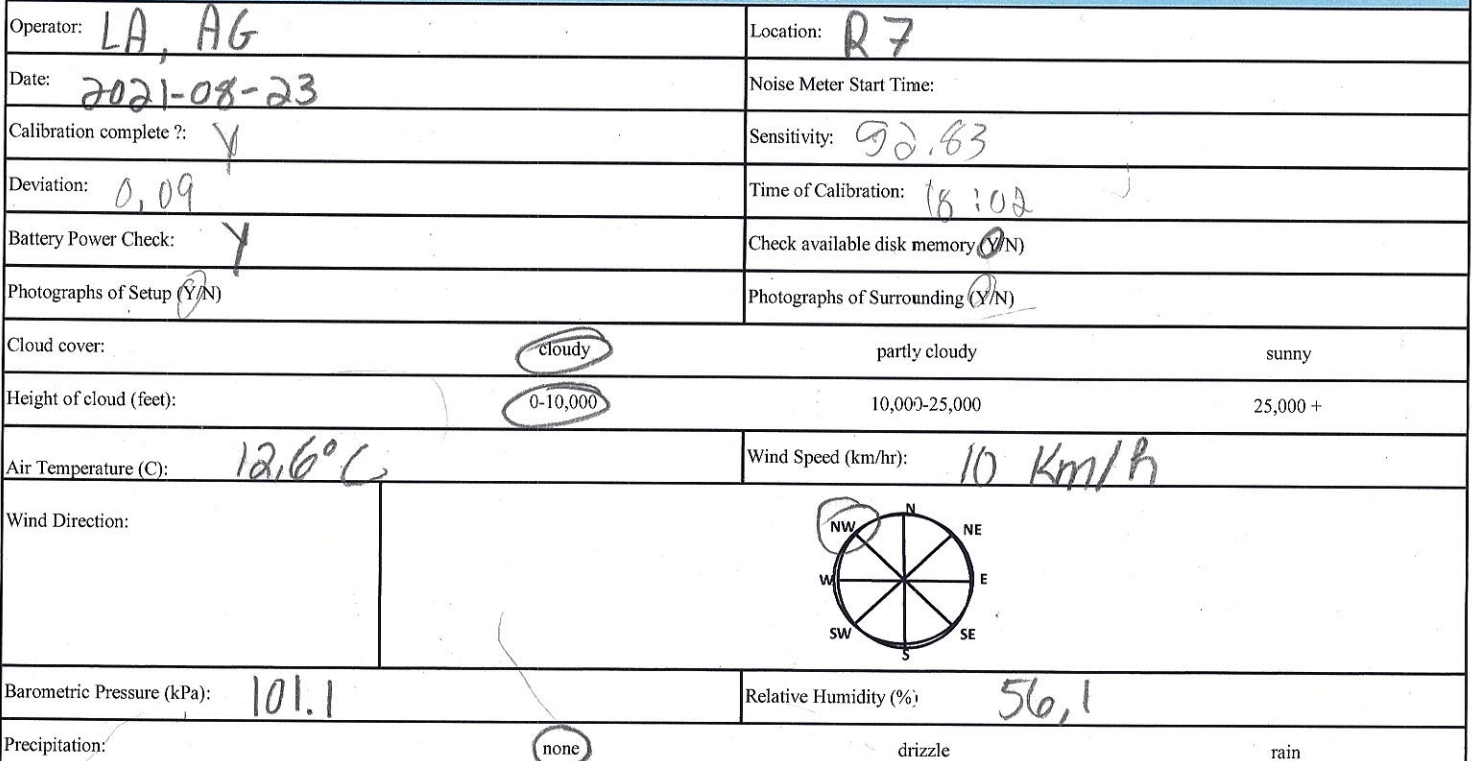 Operator: LA, AG Location: R7
Date: 2021-08-23 Noise Meter Start Time:
Calibration complete ?: Y Sensitivity: 52.63
Deviation: 0,09 Time of Calibration: 18:02
Battery Power Check: Y Check available disk memory (Y/N)
Photographs of Setup (Y/N) Photographs of Surrounding (Y/N)
Cloud cover: cloudy partly cloudy sunny
Height of cloud (feet): 0-10,000 10,000-25,000 25,000 +
Air Temperature (C): 12,6°C Wind Speed (km/hr): 10 Km/h
Wind Direction:
N
NW NE
W E
SW SE
S
Barometric Pressure (kPa): 101.1 Relative Humidity (%) 56,1
Precipitation: none drizzle rain